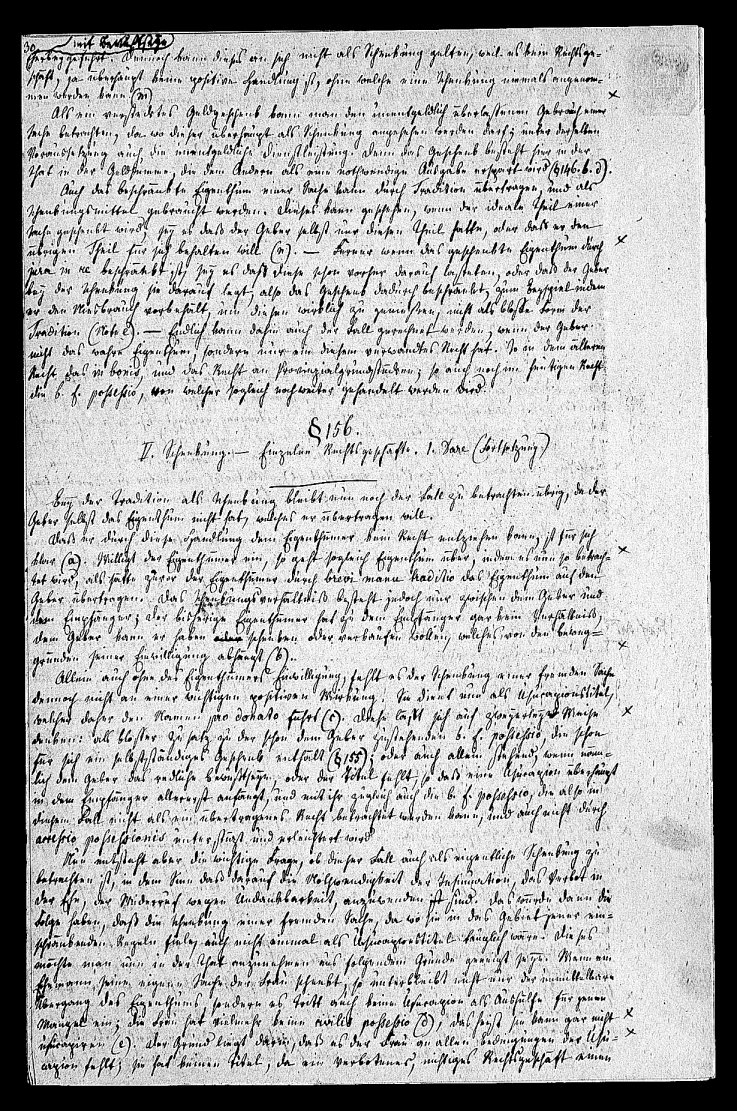 30
mit Bewußtseyn
herbey geführt. Dennoch kann dieses an sich nicht als Schenkung gelten, weil es kein Rechtsge-
schäft, ja überhaupt keine positive Handlung ist, ohne welche eine Schenkung niemals angenom-
men werden kann (m)
Als ein verstecktes Geldgeschenk kann man den unentgeldlich überlassenen Gebrauch einer
Sache betrachten, da wo dieser überhaupt als Schenkung angesehen werden darf; unter derselben
Voraussetzung auch die unentgeldliche Dienstleistung. Denn das Geschenk besteht hier in der
That in der Geldsumme, die dem Andern als eine nothwendige Ausgabe erspart wird (§ 146. b. d).
Auch das beschränkte Eigenthum einer Sache kann durch Tradition übertragen, und als
Schenkungsmittel gebraucht werden. Dieses kann geschehen, wenn der ideale Theil einer
Sache geschenkt wird, sey es daß der Geber selbst nur diesen Theil hatte, oder daß er den
übrigen Theil für sich behalten will (n). — Ferner wenn das geschenkte Eigenthum durch
jura in re beschränkt ist, sey es daß diese schon vorher darauf lasteten, oder daß der Geber
bey der Schenkung sie darauf legt, also das Geschenk dadurch beschränkt, zum Beyspiel indem
er den Niesbrauch vorbehält, um diesen wirklich zu genießen, nicht als bloße Form der
Tradition (Note l). — Endlich kann dahin auch der Fall gerechnet werden, wenn der Geber
nicht das wahre Eigenthum, sondern nur ein diesem verwandtes Recht hat. So in dem älteren
Recht das in bonis, und das Recht an Provinzialgrundstücken; so auch noch im heutigen Recht
die b. f. possessio, von welcher sogleich noch weiter gehandelt werden wird.
§ 156.
II. Schenkung. — Einzelne Rechtsgeschäfte. 1. Dare (Fortsetzung.)
Bey der Tradition als Schenkung bleibt nun noch der Fall zu betrachten übrig, da der
Geber selbst das Eigenthum nicht hat, welches er übertragen will.
Daß er durch diese Handlung dem Eigenthümer kein Recht entziehen kann, ist für sich
klar (a). Willigt der Eigenthümer ein, so geht sogleich Eigenthum über, indem es nun so betrach-
tet wird, als hätte zuvor der Eigenthümer durch brevi manu traditio das Eigenthum auf den
Geber übertragen. Das Schenkungsverhältniß besteht jedoch nur zwischen dem Geber und
dem Empfänger; der bisherige Eigenthümer hat zu dem Empfänger gar kein Verhältniß,
dem Geber kann er haben schenken oder verkaufen wollen, welches von den Beweg-
gründen seiner Einwilligung abhängt (b).
Allein auch ohne des Eigenthümers Einwilligung, fehlt es der Schenkung einer fremden Sache
dennoch nicht an einer wichtigen positiven Wirkung. Sie dient nun als Usucapionstitel,
welcher daher den Namen pro donato führt (c). Diese läßt sich auf zweyerley Weise
denken: als bloßer Zusatz zu der schon dem Geber zustehenden b. f. possessio, die schon
für sich ein selbstständiges Geschenk enthält (§ 155); oder auch allein stehend, wenn näm-
lich dem Geber das redliche Bewußtseyn, oder der Titel fehlt, so daß eine Usucapion überhaupt
in dem Empfänger allererst anfängt, und mit ihr zugleich auch die b. f. possessio, die also in
diesem Fall nicht als ein übertragenes Recht betrachtet werden kann, und auch nicht durch
accessio possessionis unterstützt und erleichtert wird.
Nun entsteht aber die wichtige Frage, ob dieser Fall auch als eigentliche Schenkung zu
betrachten ist, in dem Sinn daß darauf die Nothwendigkeit der Insinuation, das Verbot in
der Ehe, der Widerruf wegen Undankbarkeit, anzuwenden sind. Das würde dann die
Folge haben, daß die Schenkung einer fremden Sache, da wo sie in das Gebiet jener ein-
schränkenden Regeln fiele, auch nicht einmal als Usucapionstitel tauglich wäre. Dieses
möchte man nun in der That anzunehmen aus folgendem Grunde geneigt seyn. Wenn ein
Ehemann seine eigene Sache der Frau schenkt, so unterbleibt nicht nur der unmittelbare
Übergang des Eigenthums, sondern es tritt auch keine Usucapion als Aushülfe für jenen
Mangel ein; die Frau hat vielmehr keine civilis possessio (d), das heißt sie kann gar nicht
usucapiren (e). Der Grund liegt darin, daß es der Frau an allen Bedingungen der Usu-
capion fehlt; sie hat keinen Titel, da ein verbotenes, nichtiges Rechtsgeschäft einen